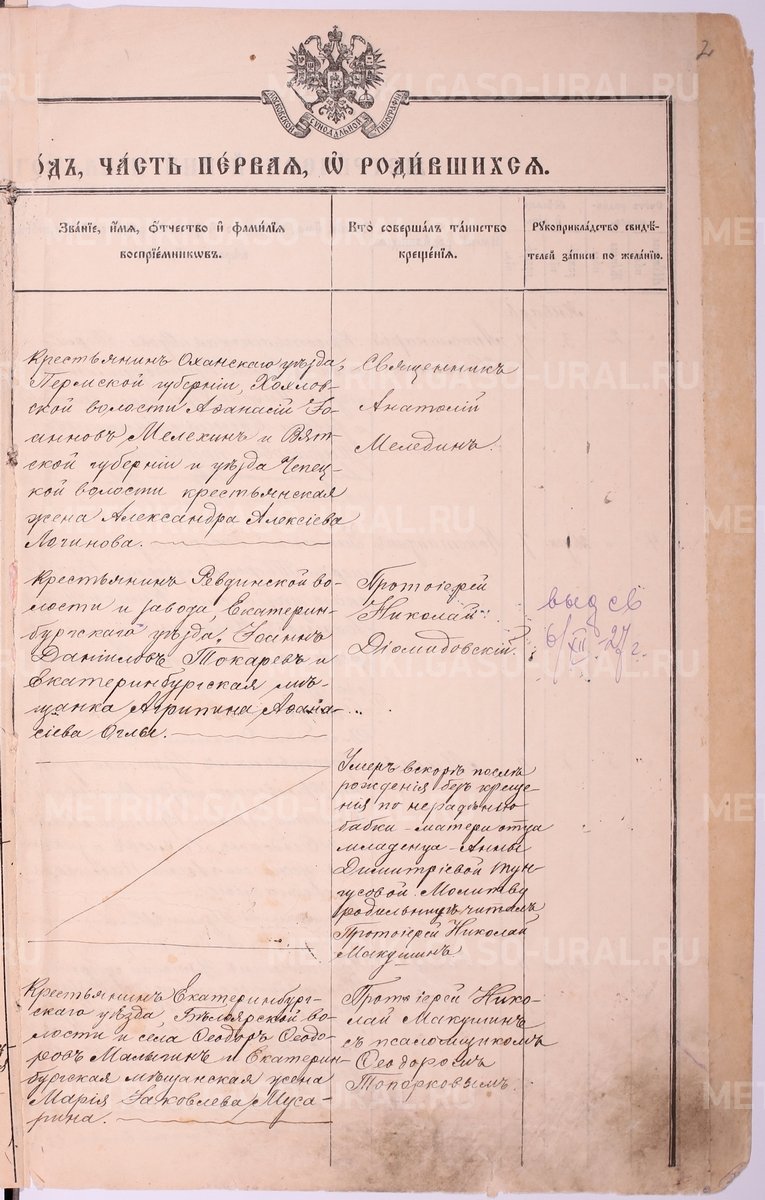 2
МОСКОВСКОЙ СѴНОДАЛЬНОЙ ТИПОГРАФІИ
ОДЪ, ЧАСТЬ ПЕРВАЯ, Ѽ РОДИВШИХСЯ.
Званіе, имя, отчество и фамилія
воспріемниковъ.
Кто совершалъ таинство
крещенія.
Рукоприкладство свидѣ-
телей записи по желанію.
Крестьянинъ Оханскаго уѣзда,
Пермской губерніи,
ской волости Аѳанасій Іо-
анновъ Мелехинъ и Вят-
ской губерніи и уѣзда Чепец-
кой волости крестьянская
жена Александра Алексіева
Логинова.
Священникъ
Анатолій
Мелединъ.
Крестьянинъ Ревдинской во-
лости и завода, Екатерин-
бургскаго уѣзда, Іоаннъ
Даніиловъ Токаревъ и
Екатеринбургская мѣ-
щанка Агрипина Аѳана-
сіева
Протоіерей
Николай
Діомидовскій.
выд св
6/XII-27 г.
Умеръ вскорѣ послѣ
рожденія безъ креще-
нія по нерадѣнію
бабки - матери отца
младенца - Анны
Димитріевой Тун-
гусовой. Молитву
родильницѣ читалъ
Протоіерей Николай
Макушинъ
Крестьянинъ Екатеринбург-
скаго уѣзда, Бѣлоярской во-
лости и села Ѳеодоръ Ѳеодо-
ровъ Малыгинъ и Екатерин-
бургская мѣщанская жена
Марія Іаковлева Муса-
рина.
Протоіерей Нико-
лай Макушинъ
съ псаломщикомъ
Ѳеодоромъ
Топорковымъ.
METRIKI.GASO-URAL.RU